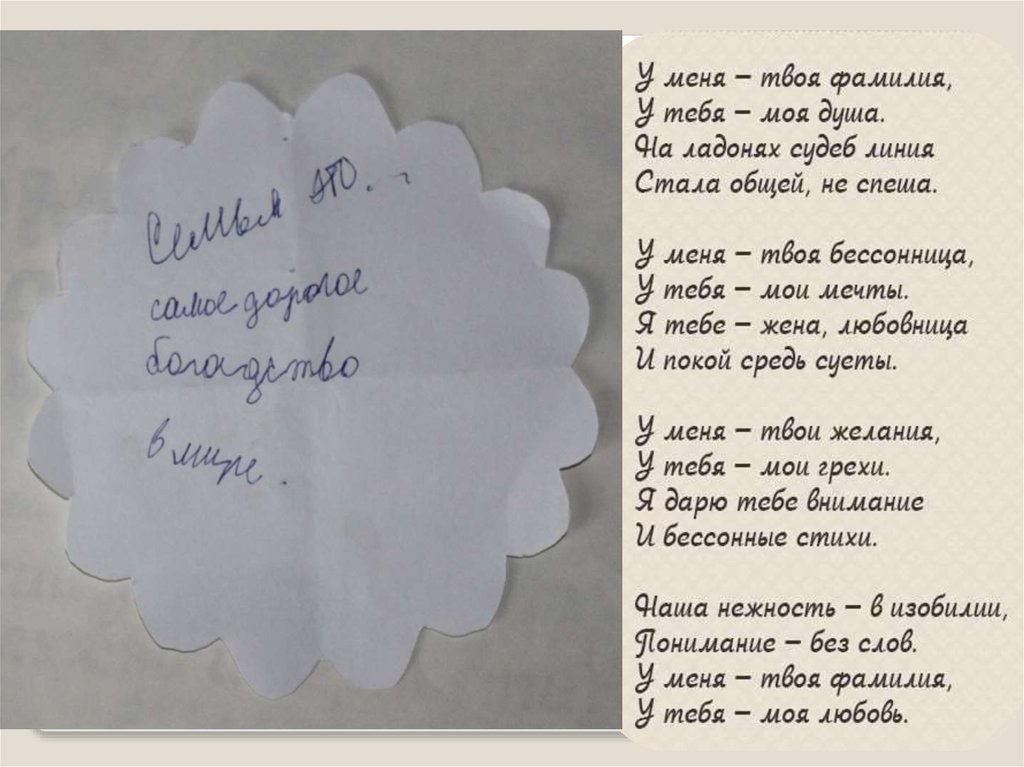 Семья это...
самое дорогое
богадство
в мире.
У меня – твоя фамилия,
У тебя – моя душа.
На ладонях судеб линия
Стала общей, не спеша.
У меня – твоя бессонница,
У тебя – мои мечты.
Я тебе – жена, любовница
И покой средь суеты.
У меня – твои желания,
У тебя – мои грехи.
Я дарю тебе внимание
И бессонные стихи.
Наша нежность – в изобилии,
Понимание – без слов.
У меня – твоя фамилия,
У тебя – моя любовь.